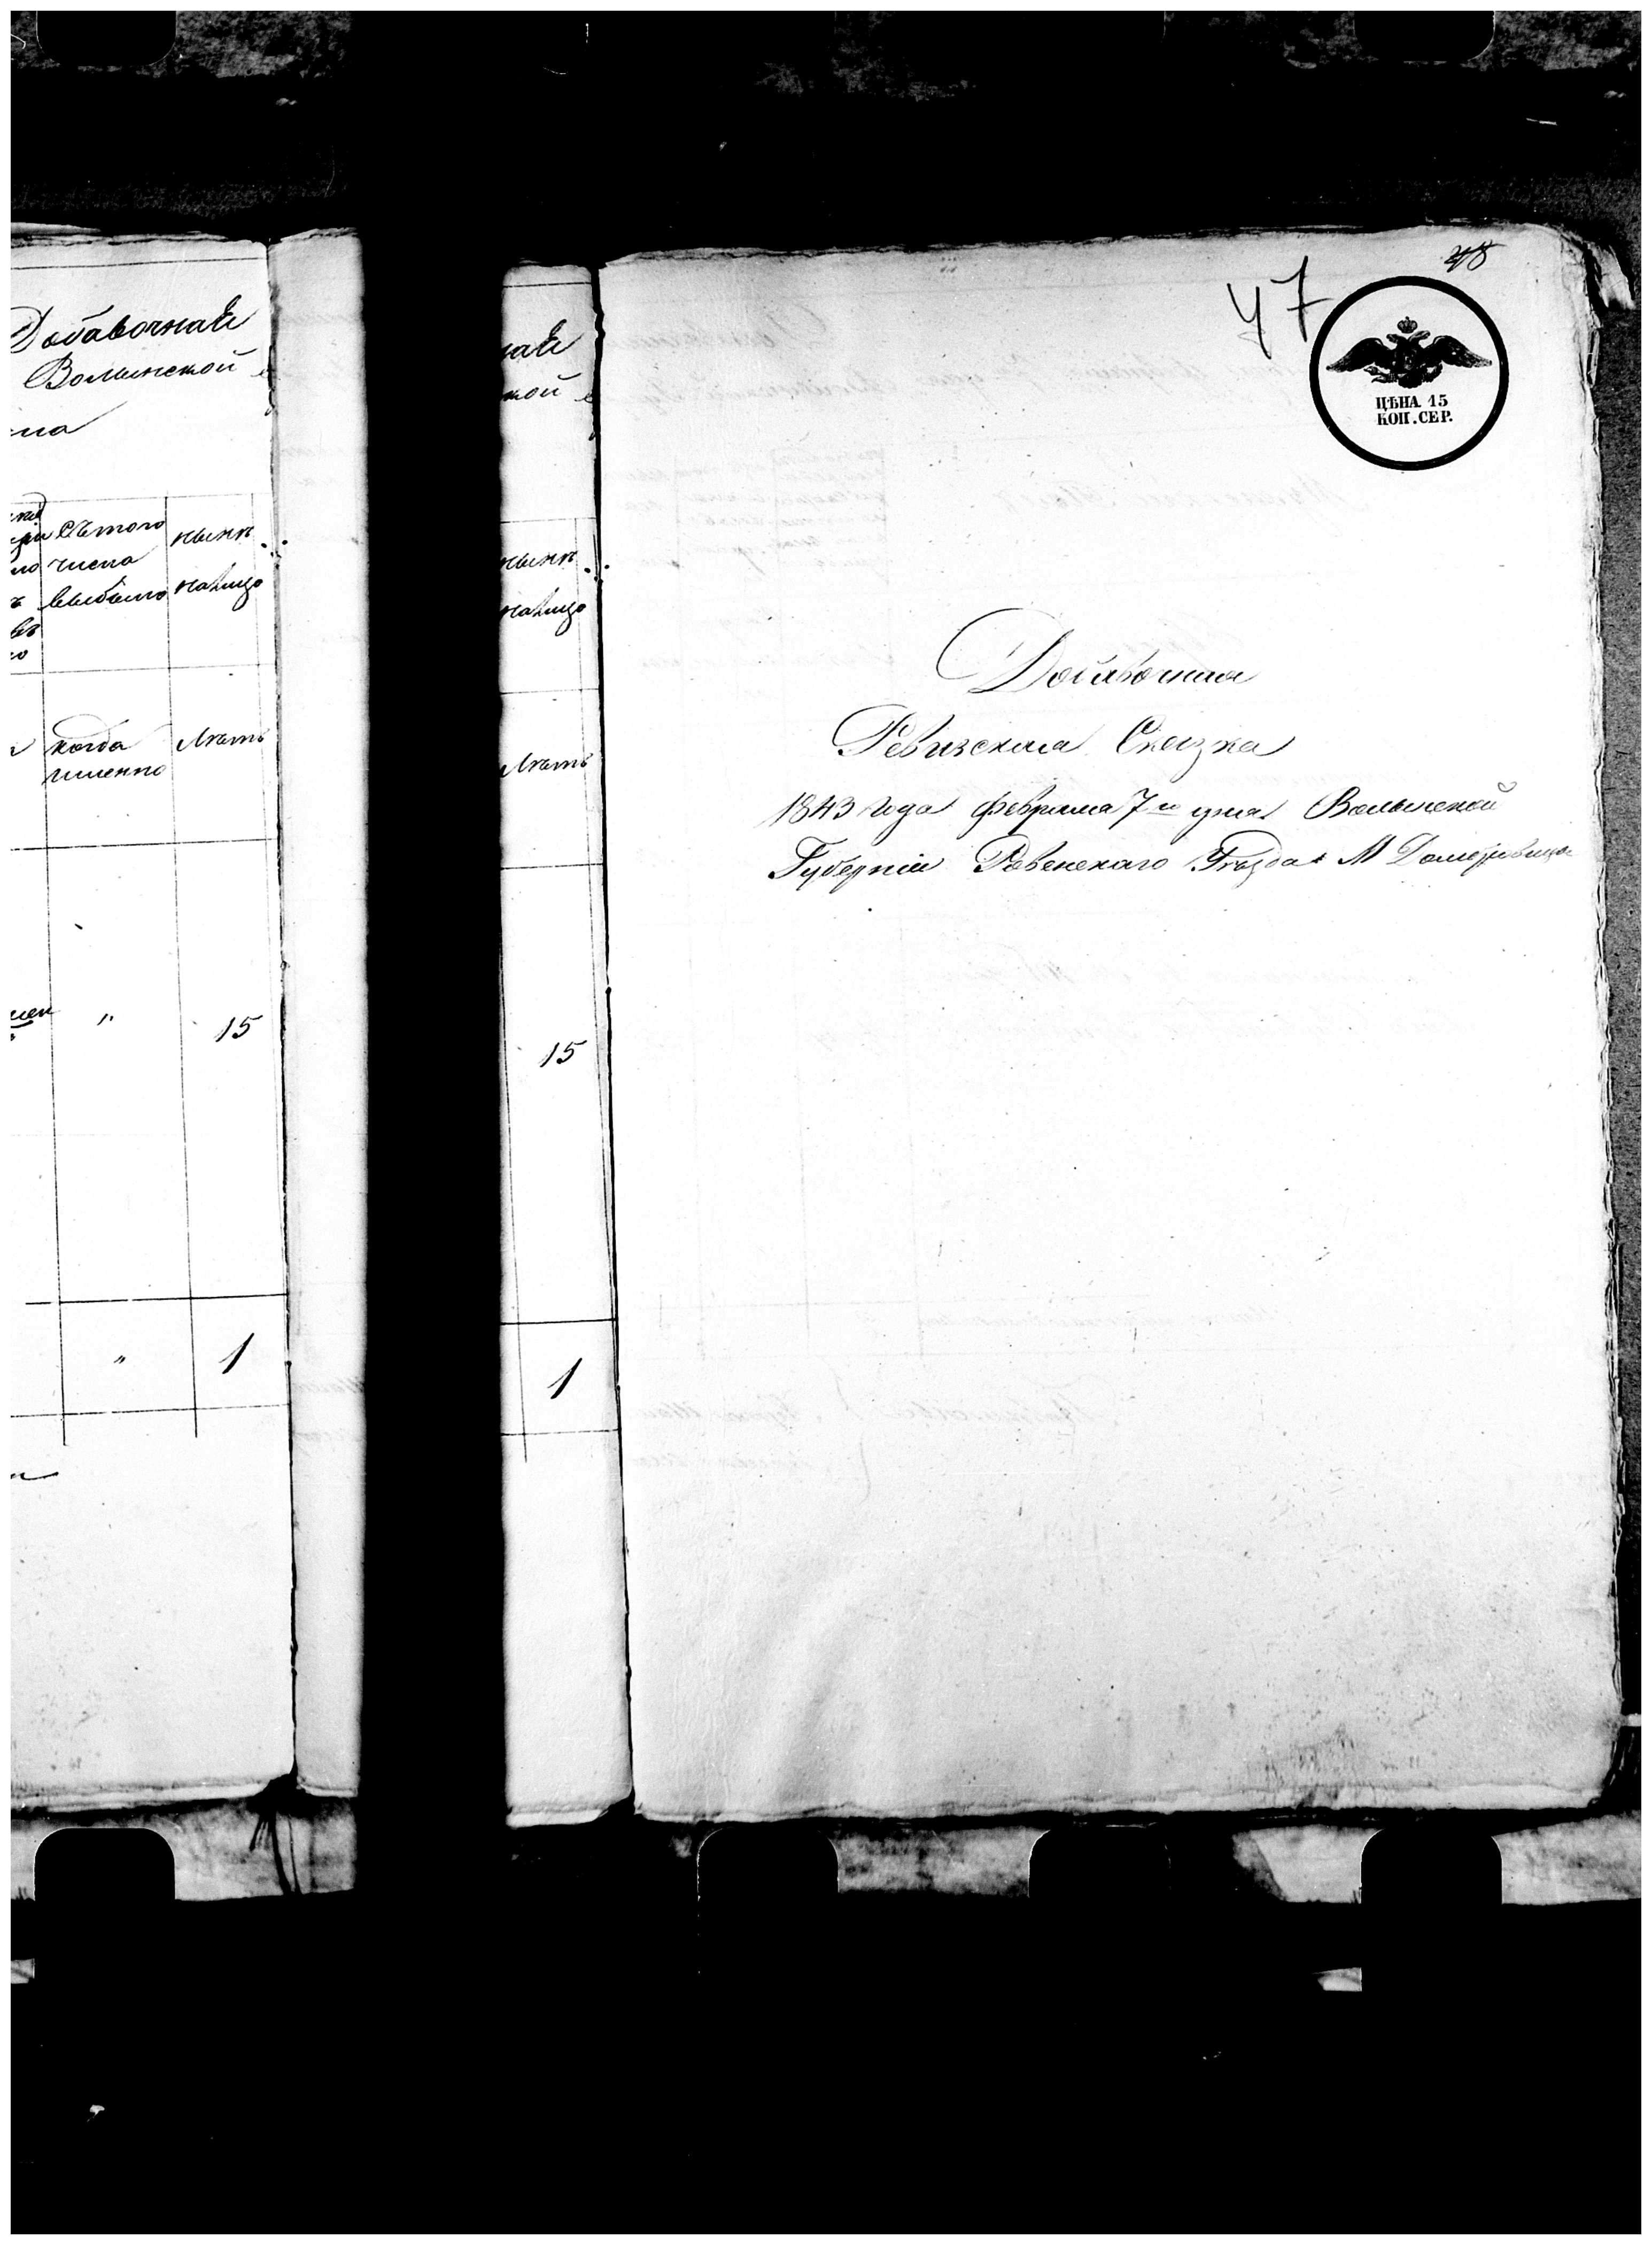 Добавочная
Волынской
Съ того
числа
выбыло
нынѣ
налицо
когда
именно
лѣтъ
"
15
"
1
нынѣ
налицо
лѣтъ
15
1
47
ЦѢНА 15
КОП. СЕР.
Добавочная
Ревизская Сказка
1843 года февраля 7го дня Волынской
Губерніи Ровенскаго Уѣзда М